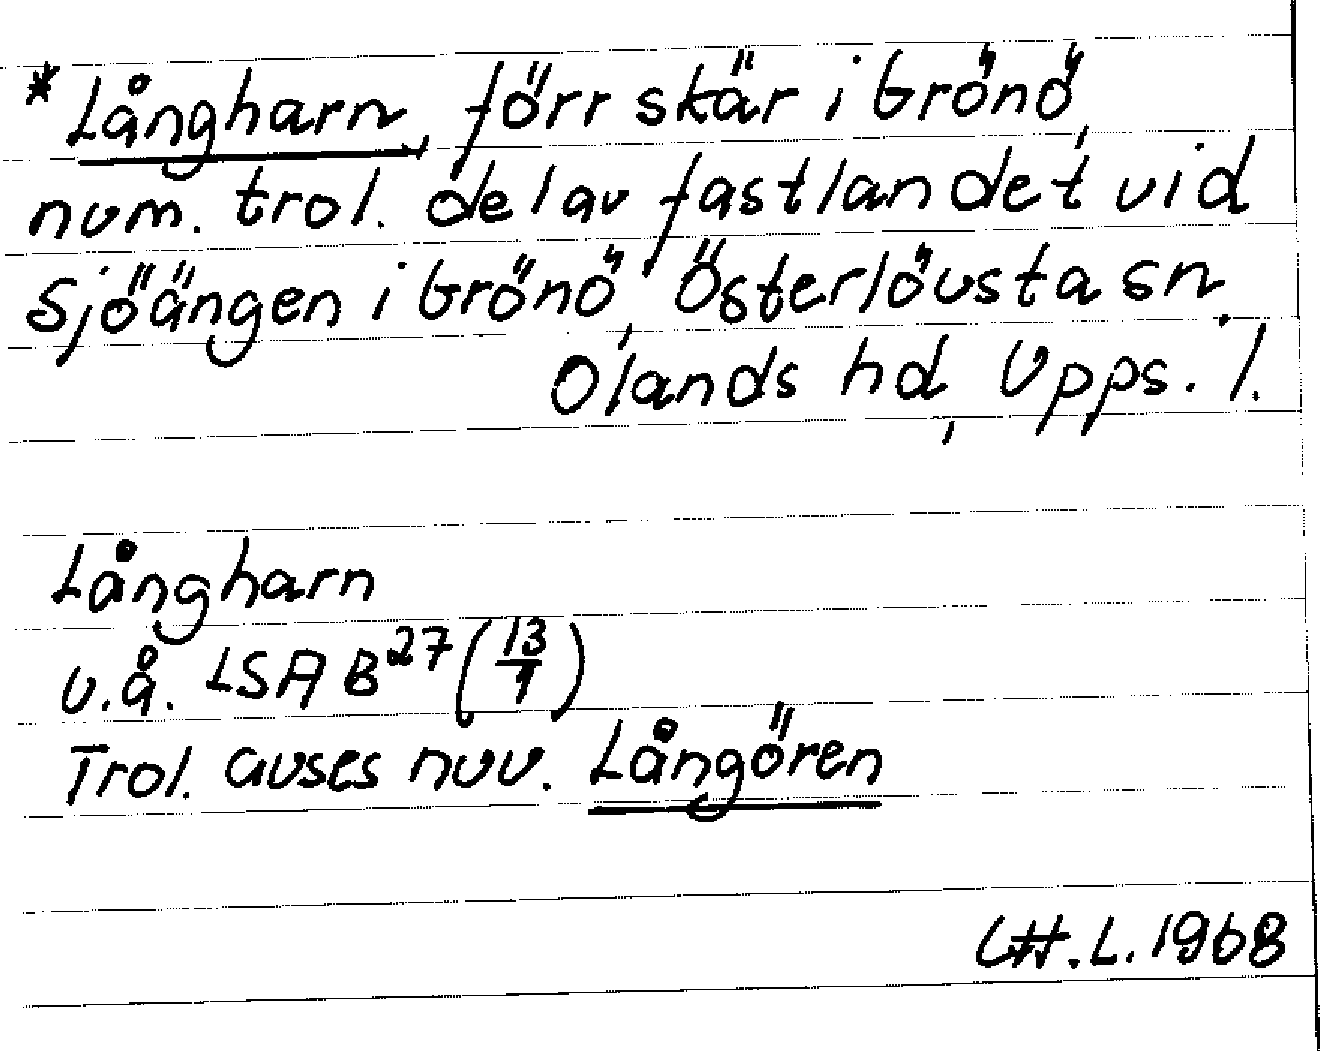 *Långharn, förr skär i Grönö,
num. trol. del av fastlandet vid
Sjöängen i Grönö, Österlövsta sn.
Olands hd, Upps. l.
Långharn
u.å. LSA B27 (13/1)
Trol. avses nuv. Långören
L. 1968